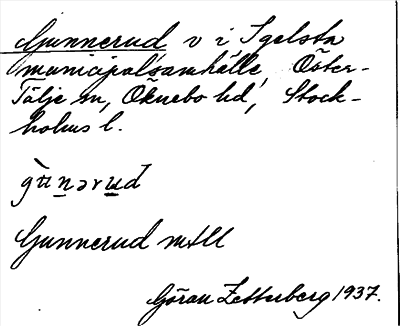 Gunnerud v i Igelsta
municipalsamhälle, Öster-
Tälje sn, Öknebo hd, Stock-
holms l.
Gunnerud mtll
Göran Zetterberg 1937.